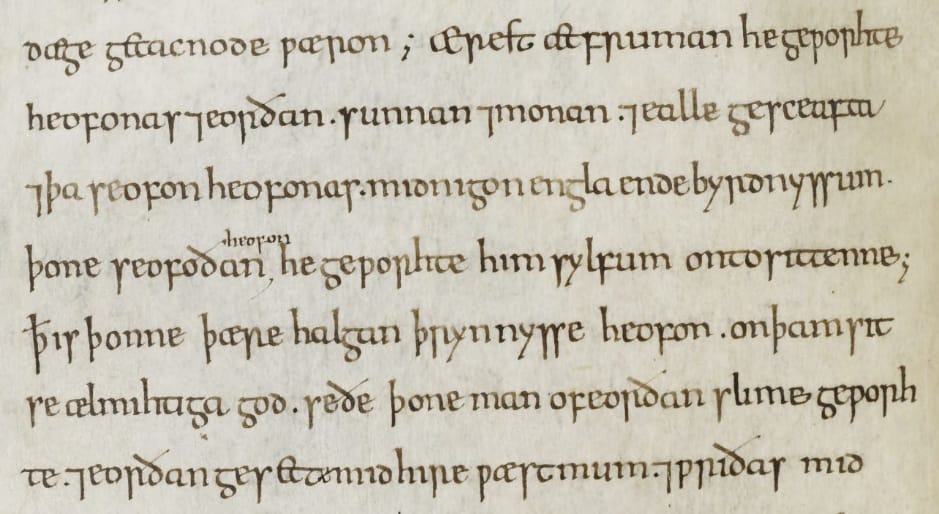 dæge getacnode ƿæron ; Ærest æt fruman he geƿorhte
heofonas ⁊ eorðan . sunnan ⁊ monan . ⁊ ealle gesceafta
⁊ þa seofon heofonas . mid nigon engla endebyrdnyssum .
þone seofoðan heofon he geƿorhte him sylfum on to sittenne ;
ꝥ is þonne þære halgan þrynnysse heofon . on þam sit
se ælmihtiga god . se ðe þone man of eorðan slime geƿorh
te . ⁊ eorðan gesette mid hire ƿæstmum . ⁊ ƿriðas mid